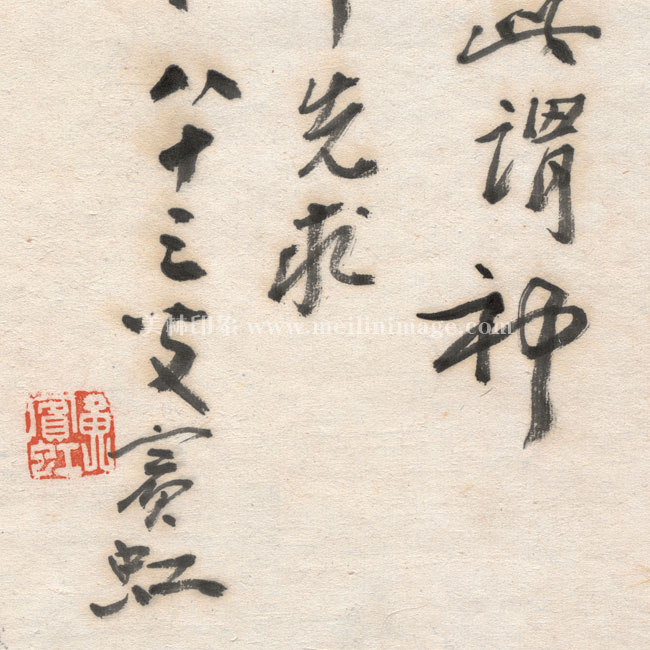 此謂神
先求
八十三叟賓虹
黃賓虹
美林印象 www.meilinimage.com